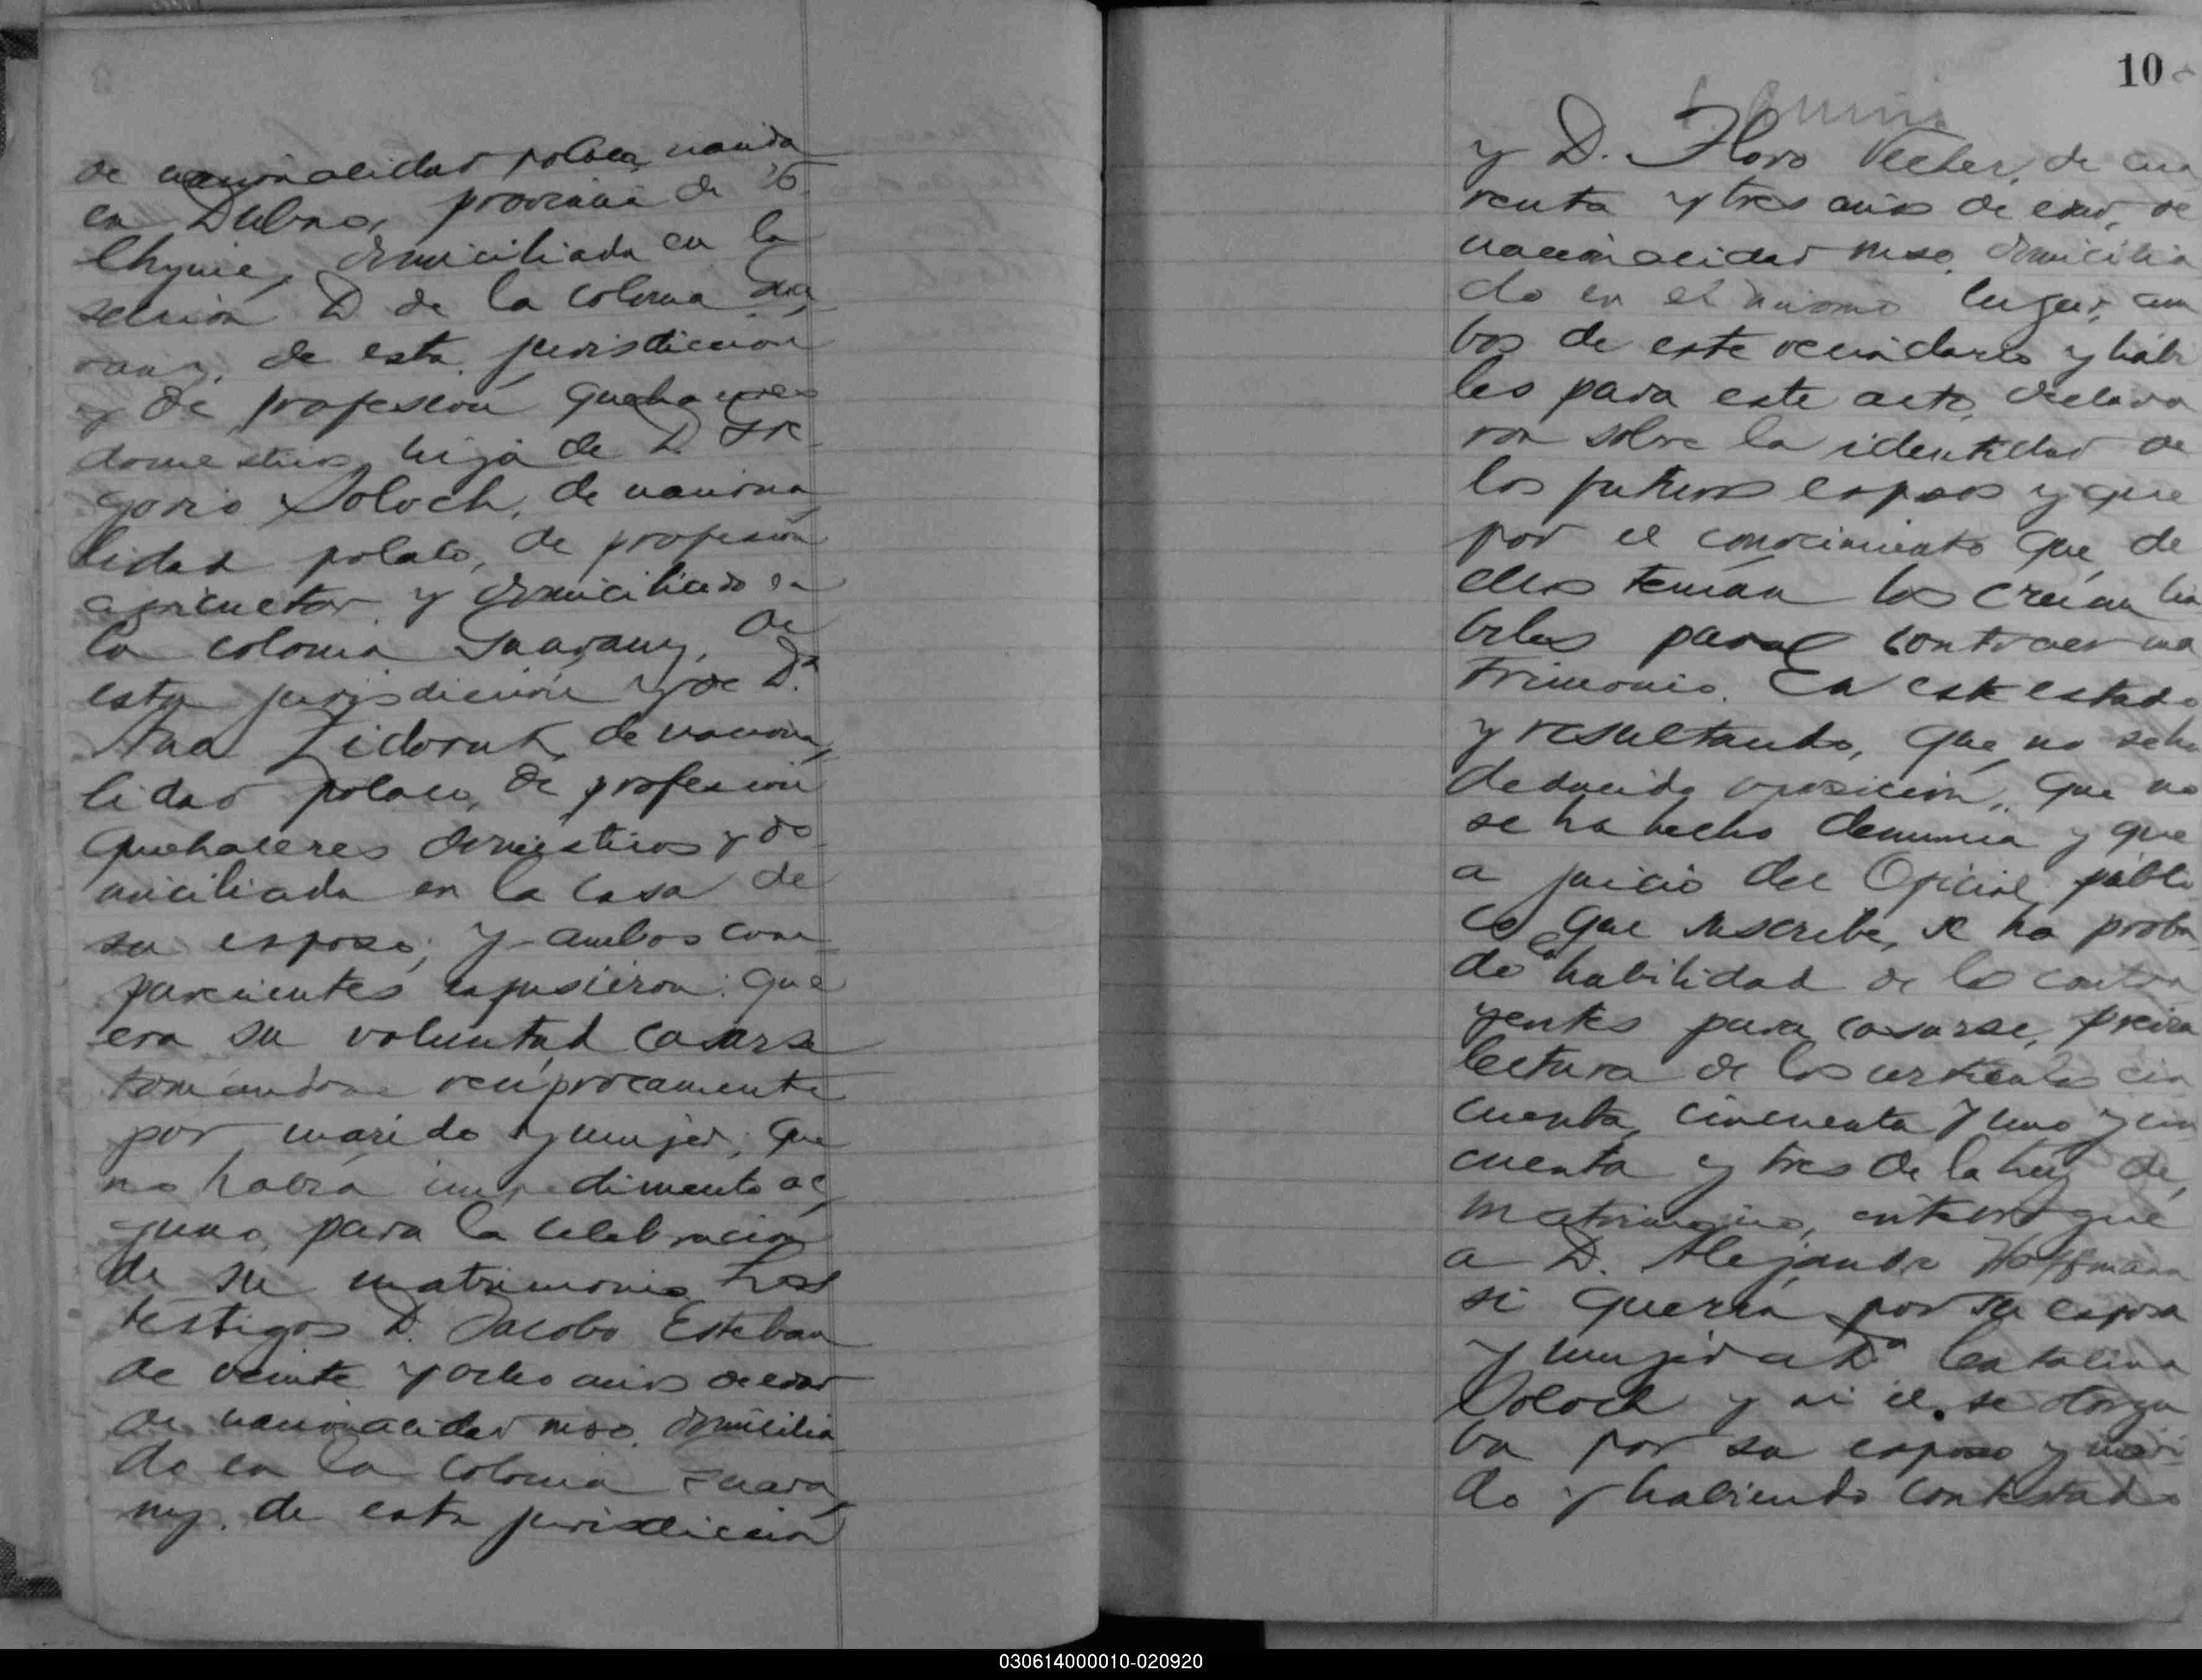 de nacionalidad polaca, nacida
en Dubno, provincia de Vo
lhynie, domiciliada en la
sección D de la colonia Gua
rany, de esta jurisdicción
y de profesión quehaceres
domesticos, hija de D.
gorio Soloch, de naciona
lidad polaco, de profesión
agricultor y domiciliado en
la colonia Guarany, de
esta jurisdicción y de Da
Ana Zidoruk, de naciona
lidad polaco, de profesión
quehaceres domesticos y do
miciliada en la casa de
su esposo; y ambos com
parecientes expusieron: que
era su voluntad casarse
tomandose recíprocamente
por marido y mujer; que
no habia impedimento al
guno para la celebración
de su matrimonio. Los
testigos D. Jacobo Esteban
de veinte y ocho años de edad
de nacionalidad ruso, domicilia
do en la colonia Guara
ny, de esta jurisdicción
10
y D. Floro de cua
renta y tres años de edad, de
nacionalidad ruso, domicilia
do en el mismo lugar, am
bos de este vecindario y hábi
les para este acto, declara
ron sobre la identidad de
los futuros esposos y que
por el conocimiento que de
ellos tenían los creían há
biles para contraer ma
trimonio. En este estado
y resultando, que no se ha
deducido oposición, que no
se ha hecho denuncia y que
a juicio del Oficial públi
co que suscribe, se ha proba
do la habilidad de los contra
yentes para casarse, previa
lectura de los artículos cin
cuenta, cincuenta y uno y cin
cuenta y tres de la ley de
matrimonio, interrogué
a D. Alejandro Hoffmann
si quería por su esposa
y mujer a Da Catalina
Soloch y si el se otorga
ba por su esposo y mari
do y habiendo contestado
030614000010-020920